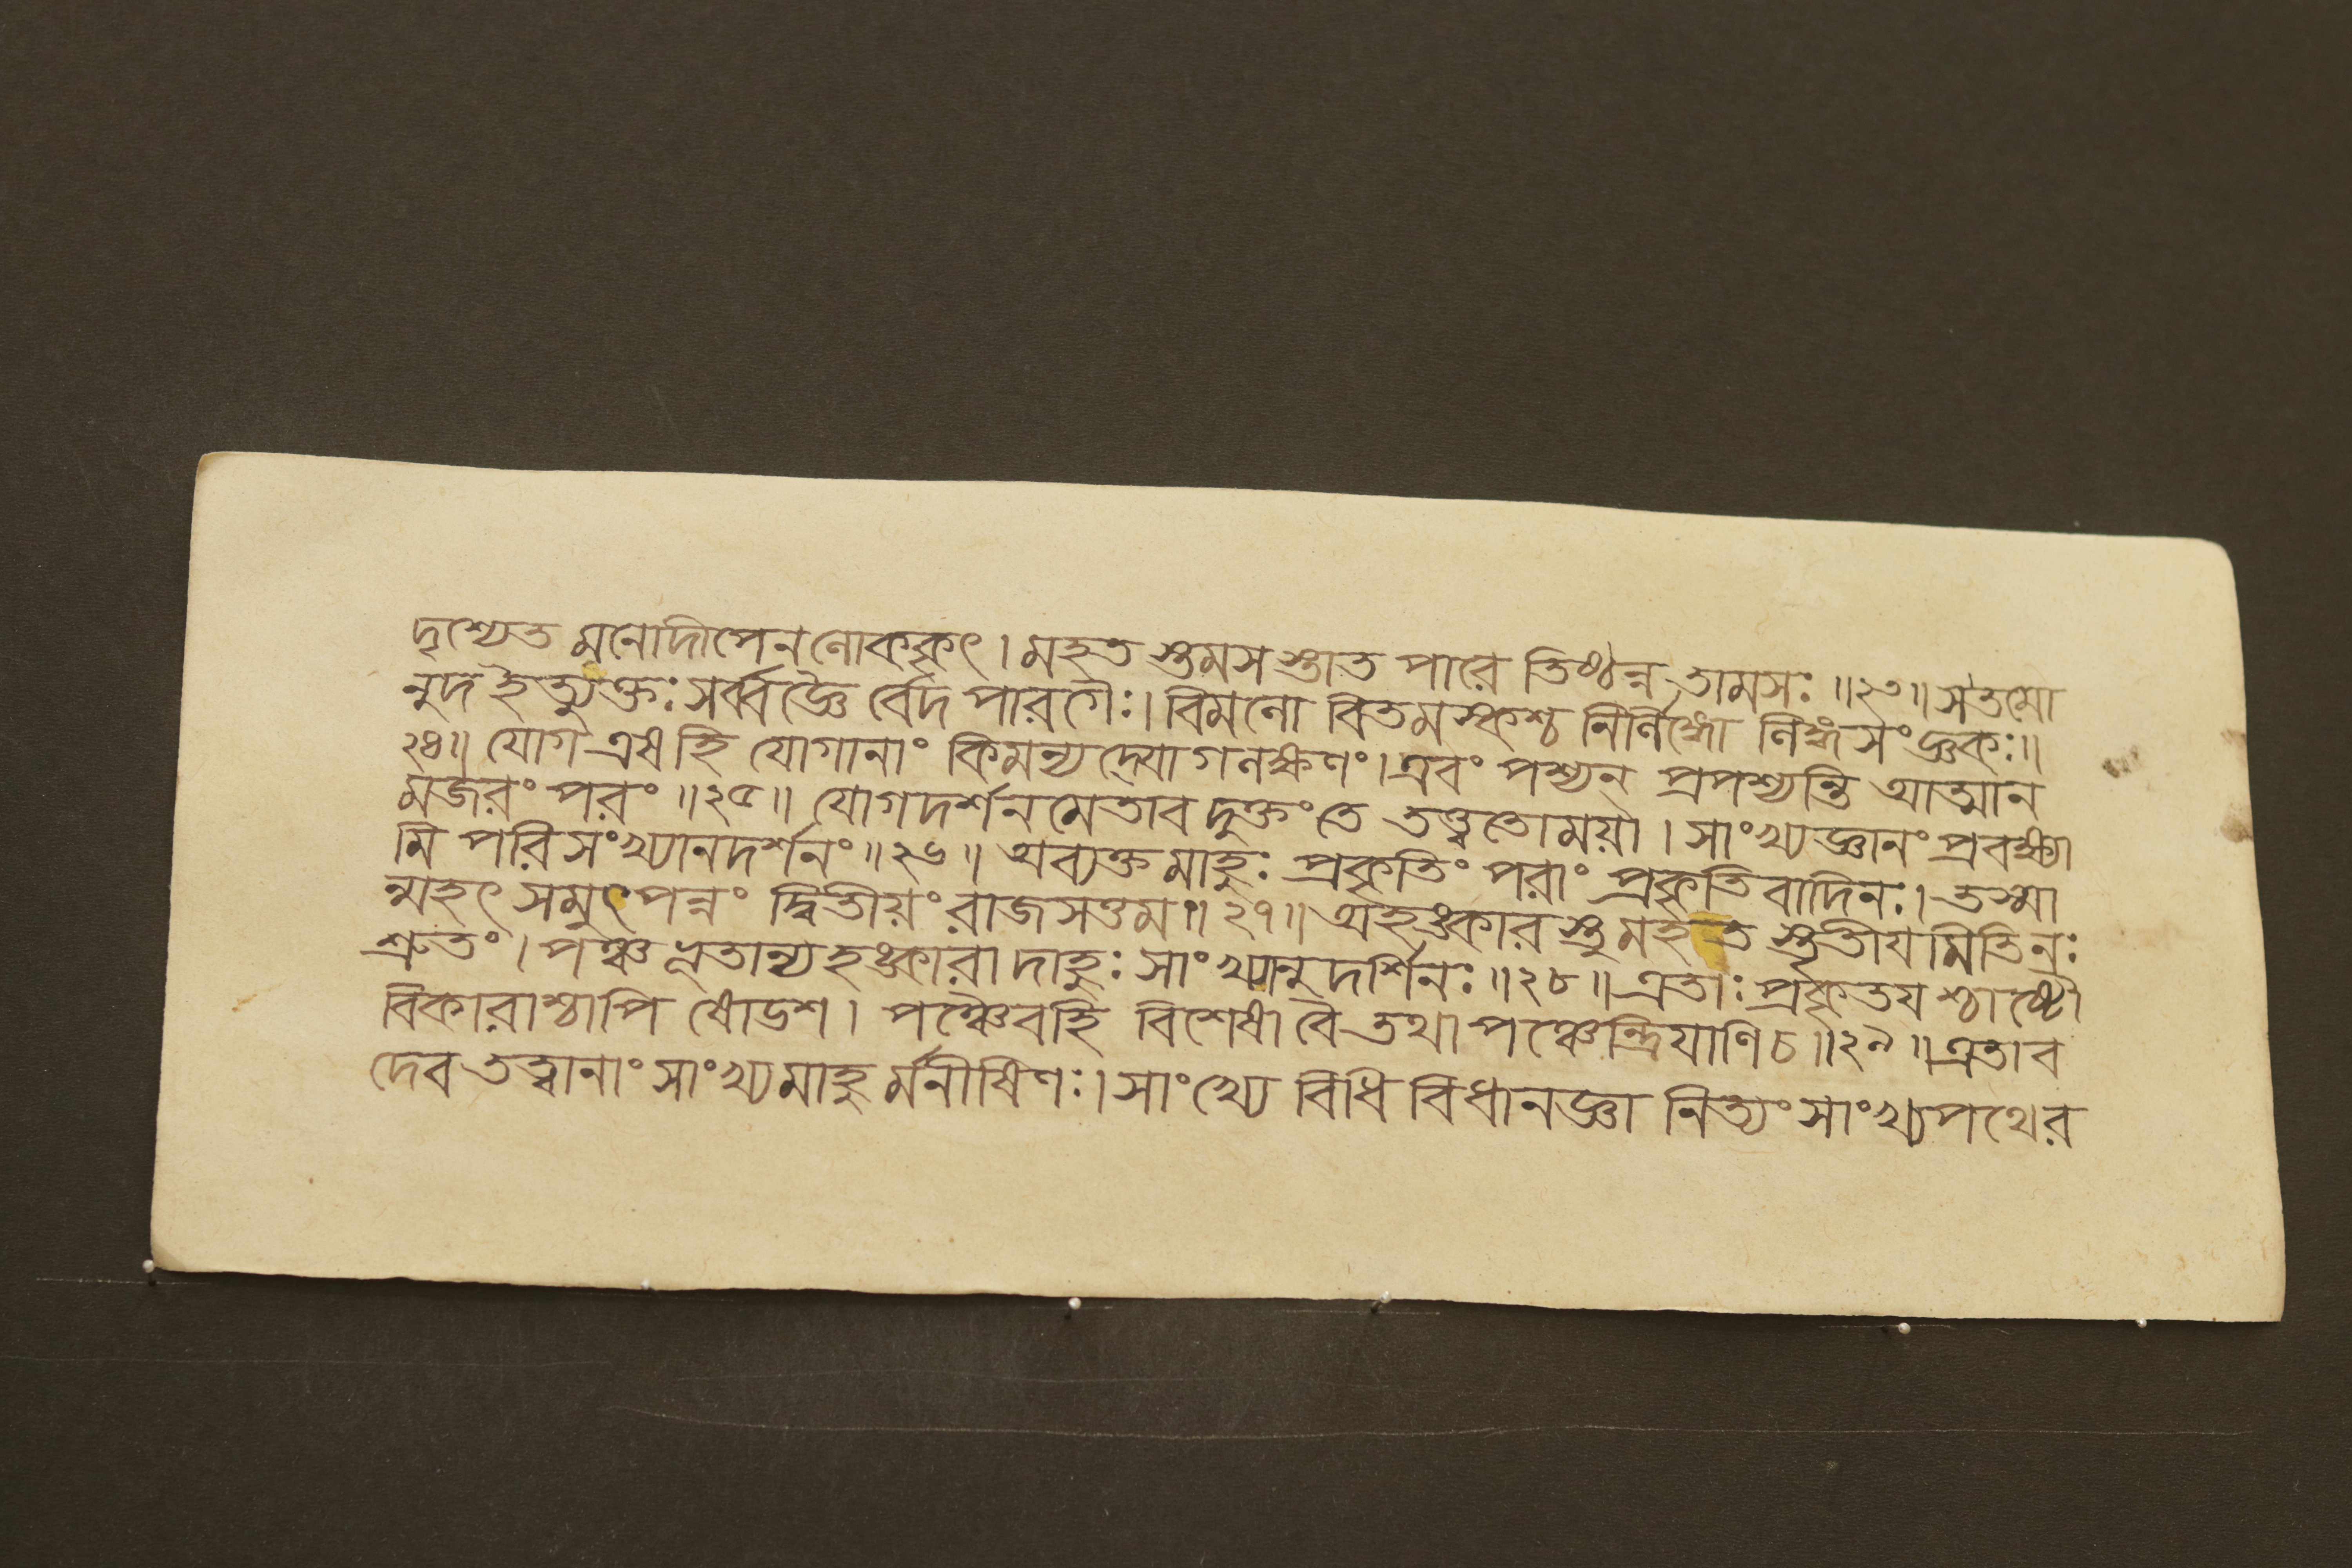 দৃশ্যেত মনোদীপেন লোককৃৎ। মহত স্তমসস্তাত পারে তিষ্ঠন্ন তামসঃ ॥২৩॥ সতমো
নুদ ইত্যুক্তঃ সর্ব্বজ্ঞৈ র্বেদ পারগৈঃ। বিমলো বিতমস্কশ্চ নির্লিঙ্গো লিঙ্গসংজ্ঞকঃ॥
২৪॥ যোগ এষ হি যোগানাং কিমন্যদ্যোগ লক্ষণং। এবং পশ্যন প্রপশ্যন্তি আত্মান
মজরং পরং ॥২৫॥ যোগদর্শনমেতাব দুক্তং তে তত্ত্বতোময়া। সাংখ্যজ্ঞানং প্রবক্ষ্যা
মি পরিসংখ্যানদর্শনং ॥২৬॥ অব্যক্ত মাহুঃ প্রকৃতিং পরাং প্রকৃতি বাদিনঃ। তস্মা
ন্মহৎ সমুৎপন্নং দ্বিতীয়ং রাজসত্তম ॥ ২৭॥ অহঙ্কার স্তু মহত স্তৃতীয মিতিনঃ
শ্রুতং। পঞ্চ ভূতান্যহঙ্কারা দাহুঃ সাংখ্যানুদর্শিনঃ ॥২৮॥ এতাঃ প্রকৃতয শ্চাষ্টৌ
বিকারাশ্চাপি ষোডশ। পঞ্চৈবহি বিশেষা বৈ তথা পঞ্চেন্দ্রিযাণি চ ॥২৯॥ এতাব
দেব তত্ত্বানাং সাংখ্যমাহু র্মনীষিণঃ। সাংখ্যে বিধি বিধানজ্ঞা নিত্যং সাংখ্যপথের